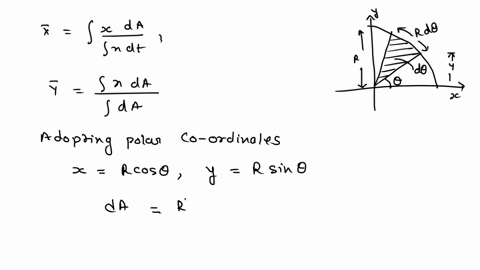 x̄ = ∫ x dA / ∫ x dt ,
Ȳ = ∫ x dA / ∫ dA
Adopring polar Co-ordinales
x = R cos θ , y = R sin θ
dA = R
y
R dθ
R
dθ
θ
ȳ
x